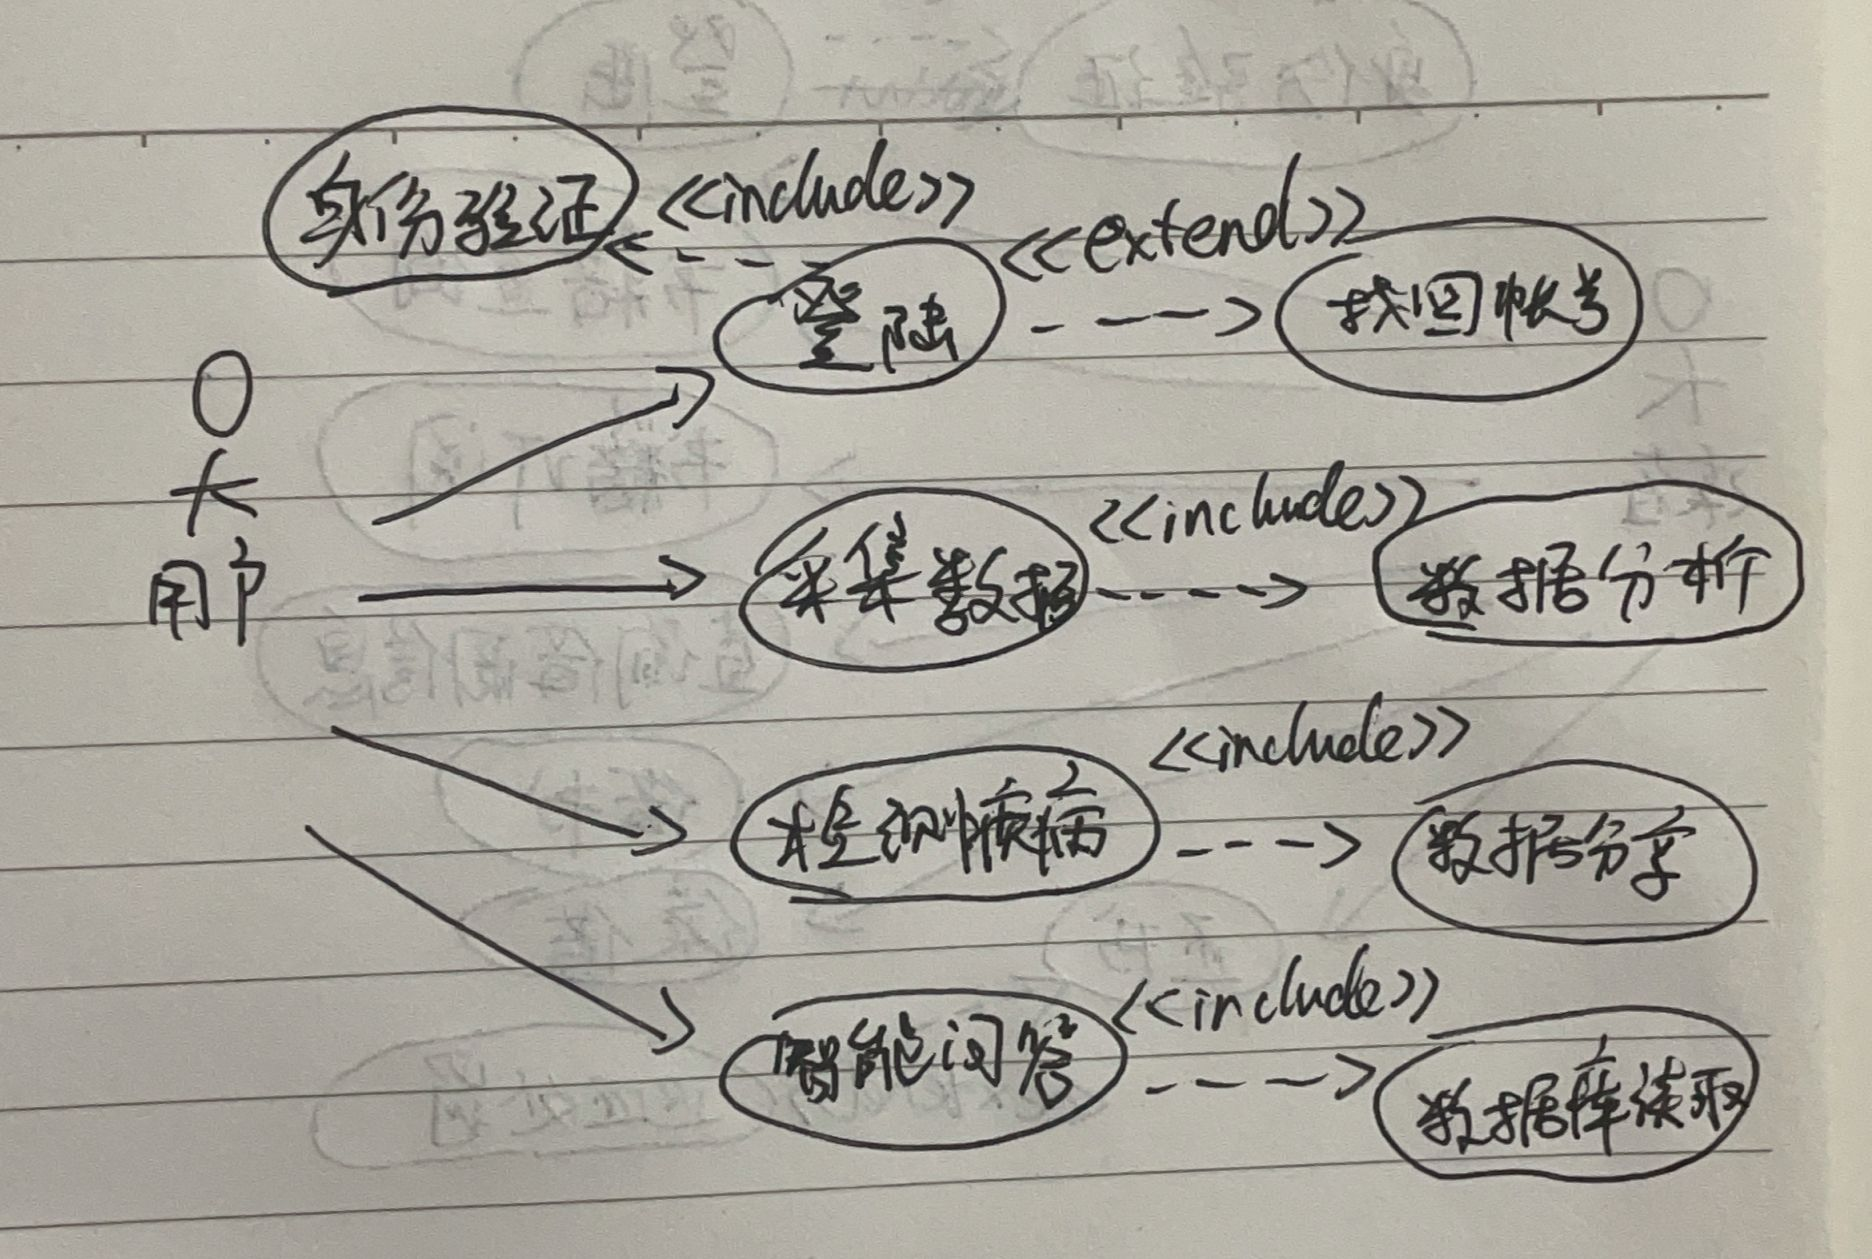 身份验证
<<include>>
<<extend>>
登陆
找回帐号
用户
采集数据
<<include>>
数据分析
检测疾病
<<include>>
数据分享
智能问答
<<include>>
数据库读取